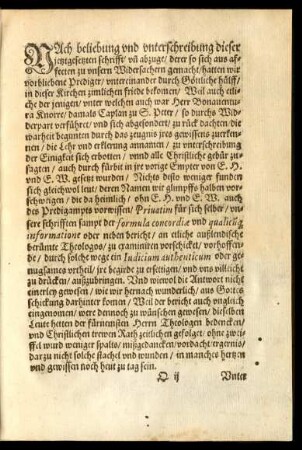 NAch beliebung vnd vnterschreibung dieser
jetztgesetzten schrifft / vñ abzuge / derer so sich aus af-
fecten zu vnsern Widersachern gemacht / hatten wir
vorbliebene Prediger / vntereinander durch Göttliche hülff /
in dieser Kirchen zimlichen friede bekomen / Weil auch etli-
che der jenigen / vnter welchen auch war Herr Bonauentu-
ra Knorre / damals Caplan zu S. Peter / so durchs Wid-
derpart vorführet / vnd sich abgesondert / zu rück dachten die
warheit begunten durch das zeugnis jres gewissens zuerken-
nen / die Lehr vnd erklerung annamen / zu vnterschreibung
der Einigkeit sich erbotten / vnnd alle Christliche gebür zu-
sagten / auch durch fürbit in jre vorige Empter von E. H.
vnd E. W. gesetzt wurden / Nichts desto weniger funden
sich gleichwol leut / deren Namen wir glimpffs halben vor-
schwigen / die da heimlich / ohn E. H. vnd E. W. auch
des Predigampts vorwissen / Priuatim für sich selber / vn-
sere schrifften sampt der formula concordiæ vnd qualicunq́
informatione oder neben bericht / an etliche ausslendische
berümte Theologos / zu examiniren vorschicket / vorhoffen-
de / durch solche wege ein Iudicium authenticum oder ge-
nugsames vrtheil / jre begierde zu ersettigen / vnd vns villeicht
zu drücken / auszubringen. Vnd wiewol die Antwort nicht
einerley gewesen / wie wir hernach wunderlich / aus Gottes
schickung darhinter komen / Weil der bericht auch vngleich
eingenomen / were dennoch zu wünschen gewesen / dieselben
Leute hetten der fürnemsten Herrn Theologen bedencken /
vnd Christlichen trewen Rath zeitlichen gefolget / ohne zwei-
ffel würd weniger spalts / müssgedancken / vordacht / ergernis /
dar zu nicht solche stachel vnd wunden / in manches hertzen
vnd gewissen noch heut zu tag sein.
O ij Vnter